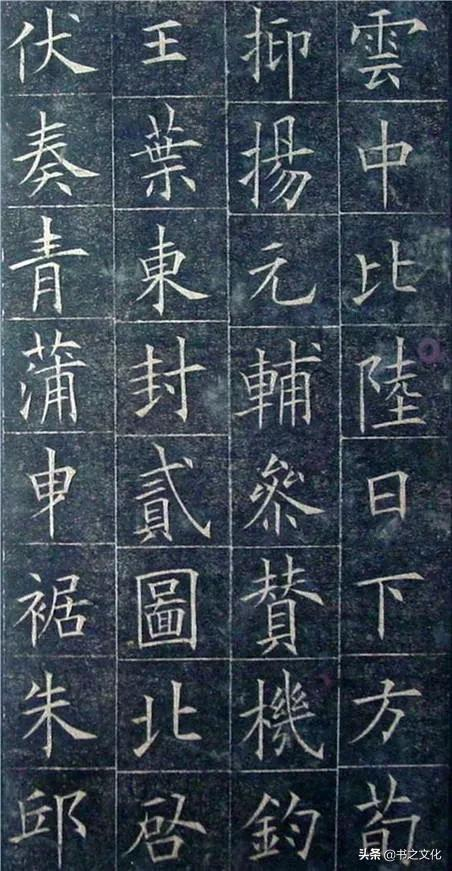 雲中比陸日下方荀
抑揚元輔參賛機鈞
王葉東封貳圖北启
伏奏青蒲申裾朱邱
头条 @书之文化